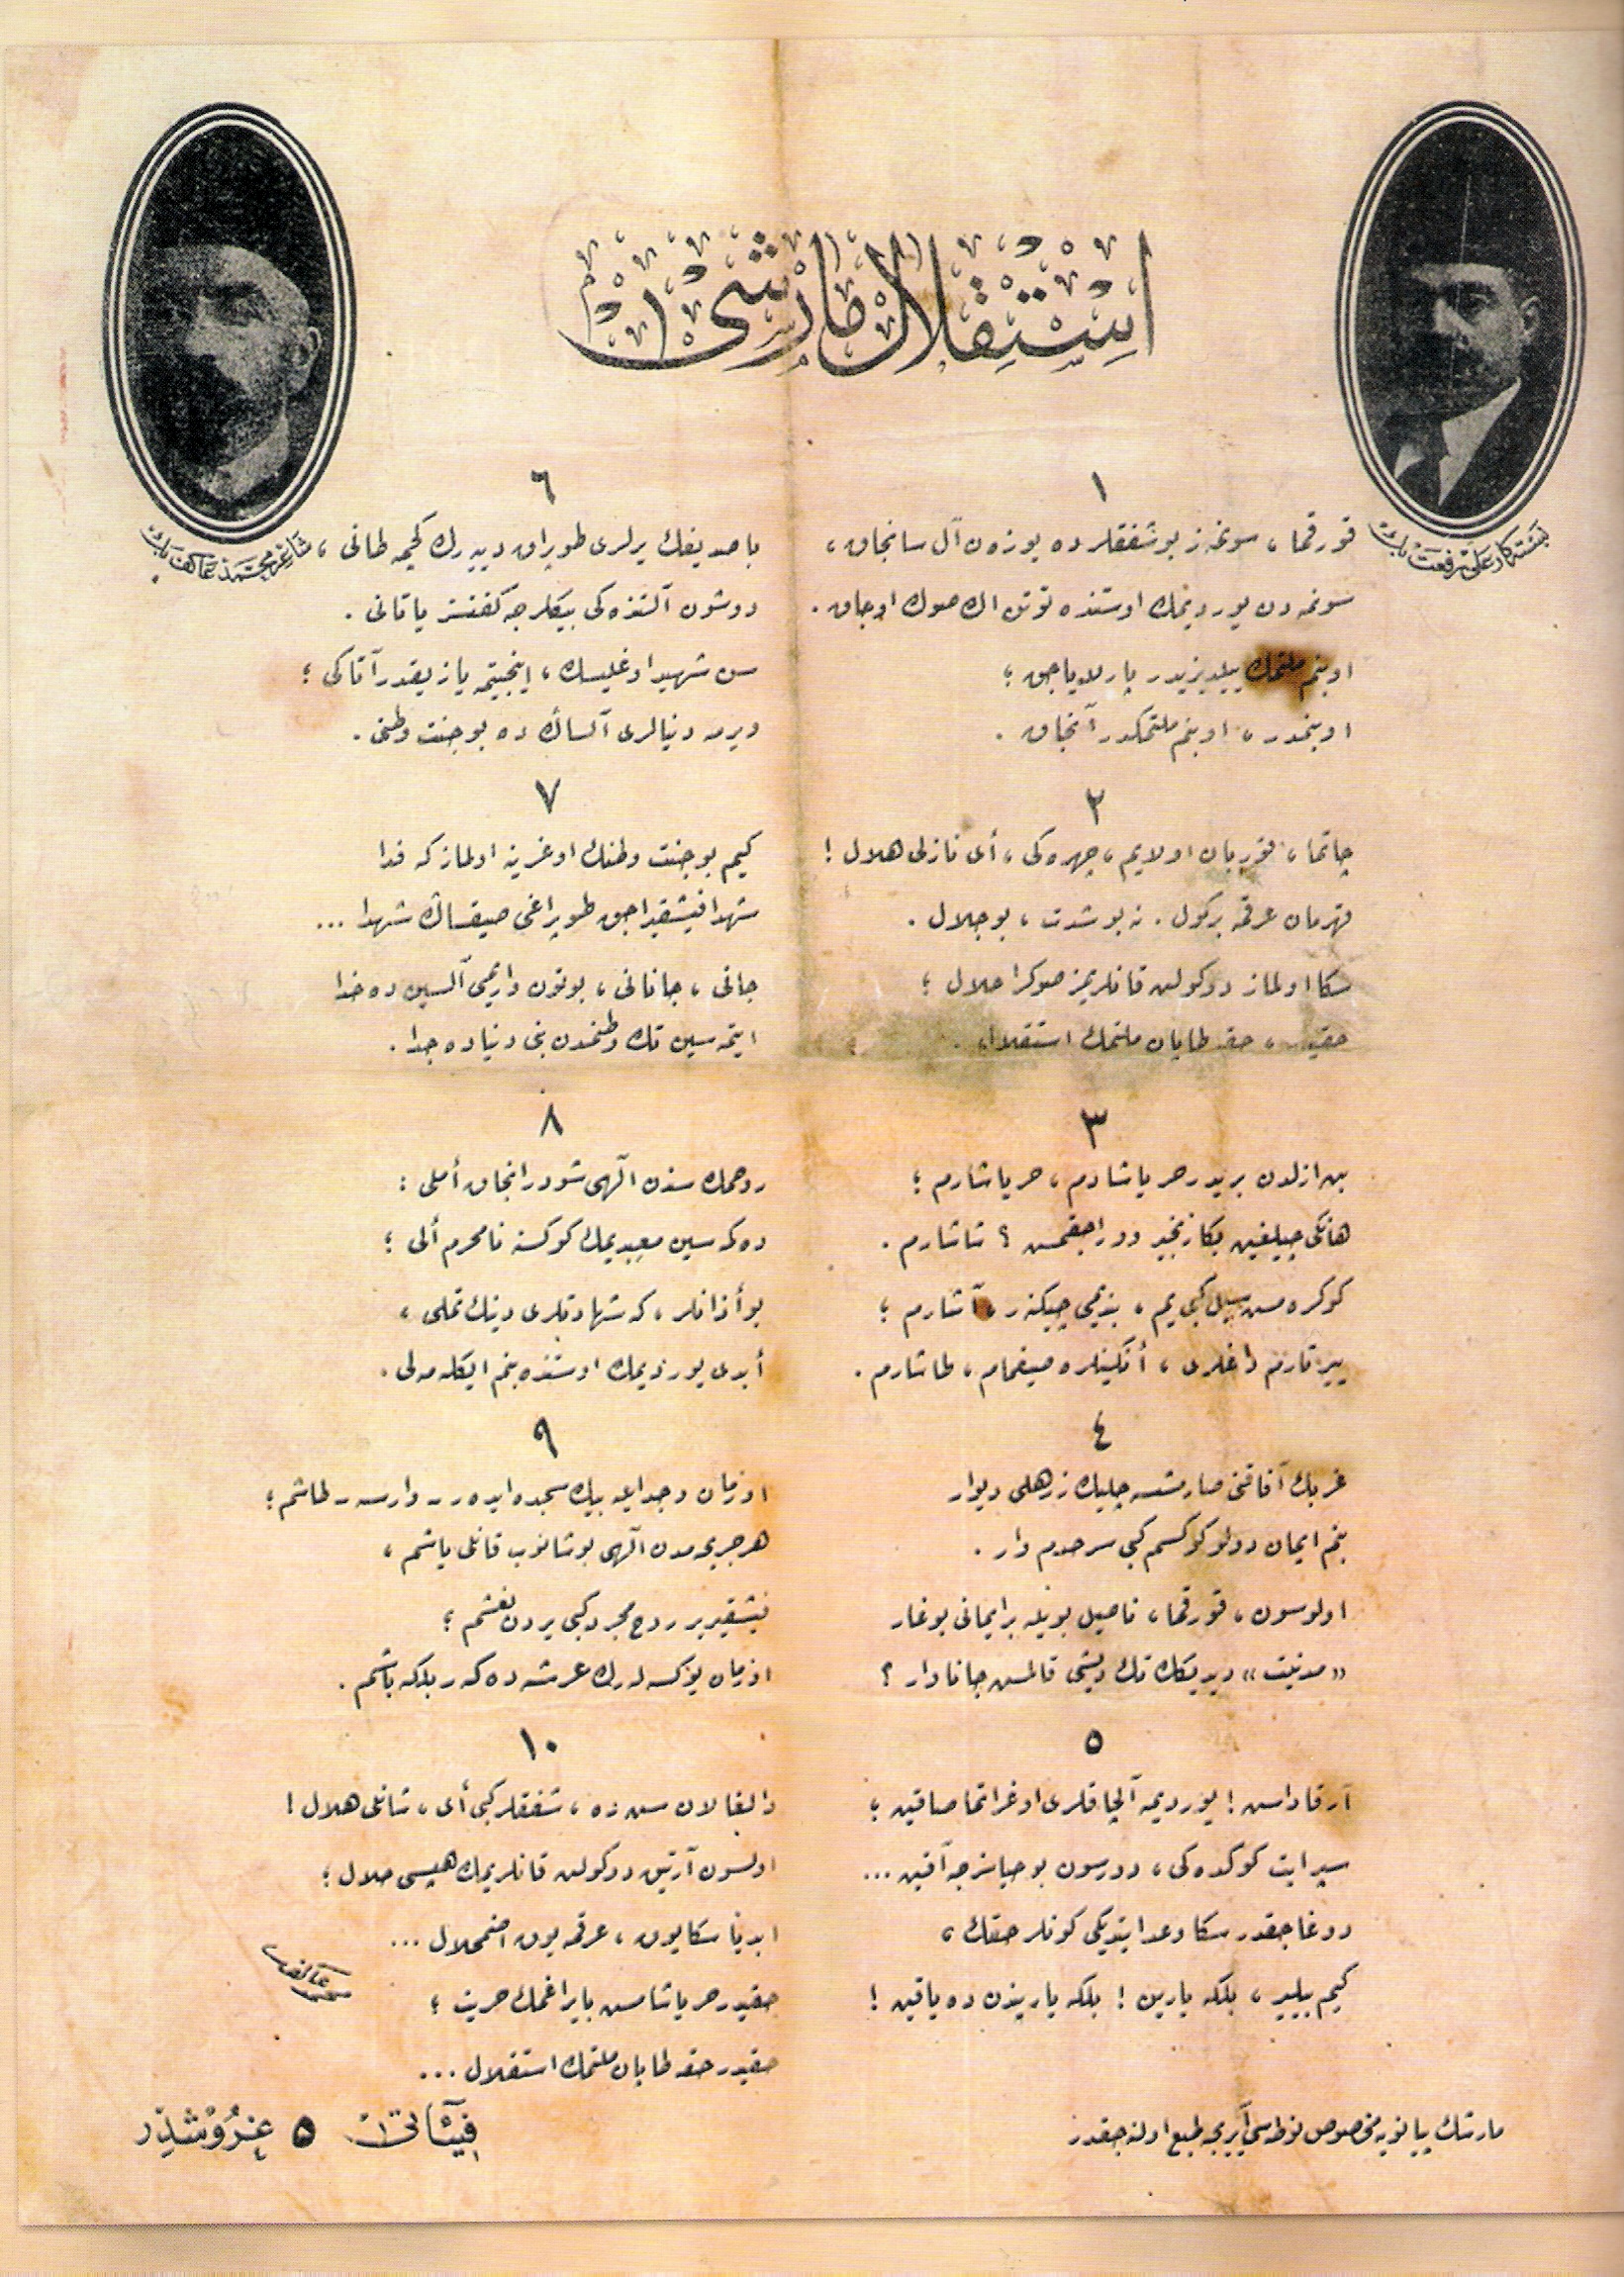 استقلال مارشی
بسته‌كار علی رفعت بك
شاعر محمد عاكف بك
١
قورقما، سونمز بو شفقلرده یوزن آل سانجاق،
سونمه‌دن یوردیمك اوستنده توتن الك صوك اوجاق.
او بنم ملتمك ییلدیزیدر پارلایاجق؛
او بنمدر، او بنم ملتمكدر آنجاق.
٢
چاتما، قوربان اولایم، چهره‌كی، أی نازلی هلال!
قهرمان عرقمه بر كول. نه بو شدت، بو جلال.
سكا اولماز دوكولن قانلریمز صوكرا حلال؛
حقیدر، حقه طاپان ملتمك استقلال.
٣
بن ازلدن بریدر حر یاشادم، حر یاشارم؛
هانكی چیلغین بكا زنجیر ووراجقمش؟ شاشارم.
كوكره‌مش سیل كبی یم، بندیمی چیكنر، آشارم؛
ییرتارم داغلری، أنكینلره صیغمام، طاشارم.
٤
غربك آفاقنی صارمشسه چلیك زرهلی دیوار
بنم ایمان دولو كوكسم كبی سرحدم وار.
اولوسون، قورقما، ناصیل بویله بر ایمانی بوغار
«مدنیت» دیدیكك تك دیشی قالمش جاناوار؟
٥
آرقاداش! یوردیمه آلچاقلری اوغراتما صاقین؛
سپر ایت كوكده‌كی، دورسون بو حیاسزجه آقین...
دوغاجقدر سكا وعد ایتدیكی كونلر حقك،
كیم بیلیر، بلكه یارین! بلكه یاریندن ده یاقین!
٦
باصدیغك یرلری طوپراق دییه‌رك كچمه طانی،
دوشون آلتنده‌كی بیكلرجه كفنسز یاتانی.
سن شهید اوغلیسك، اینجیتمه یازیقدر آتاكی؛
ویرمه دنیالری آلساك ده بو جنت وطنی.
٧
كیم بو جنت وطنك اوغرینه اولماز كه فدا
شهدا فیشقیراجق طوپراغی صیقساك شهدا...
جانی، جانانی، بوتون واریمی آلسین ده خدا
ایتمه‌سین تك وطنمدن بنی دنیاده جدا.
٨
روحمك سندن الهی شودر انجاق أملی:
ده‌كمه‌سین معبدیمك كوكسنه نامحرم ألی؛
بو أذانلر، كه شهادتلری دینك تملی،
أبدی یوردیمك اوستنده بنم ایكله‌ملی.
٩
او زمان وجد ایله بیك سجده ایدر - وارسه - طاشم؛
هر جریحه‌مدن الهی بوشانوب قانلی یاشم،
فیشقیریر روح مجرد كبی یردن نعشم؛
او زمان یوكسله‌رك عرشه ده‌كر بلكه باشم.
١٠
دالغالان سن ده، شفقلر كبی أی، شانلی هلال!
اولسون آرتیق دوكولن قانلریمك هپسی حلال؛
ابدیاً سكا یوق، عرقمه یوق اضمحلال...
حقیدر حر یاشامش بایراغمك حریت؛
حقیدر حقه طاپان ملتمك استقلال...
محمد عاكف
مارشك پیانویه مخصوص نوطه‌سی آیریجه طبع اولنه‌جقدر
فیئاتی ٥ غروشدر